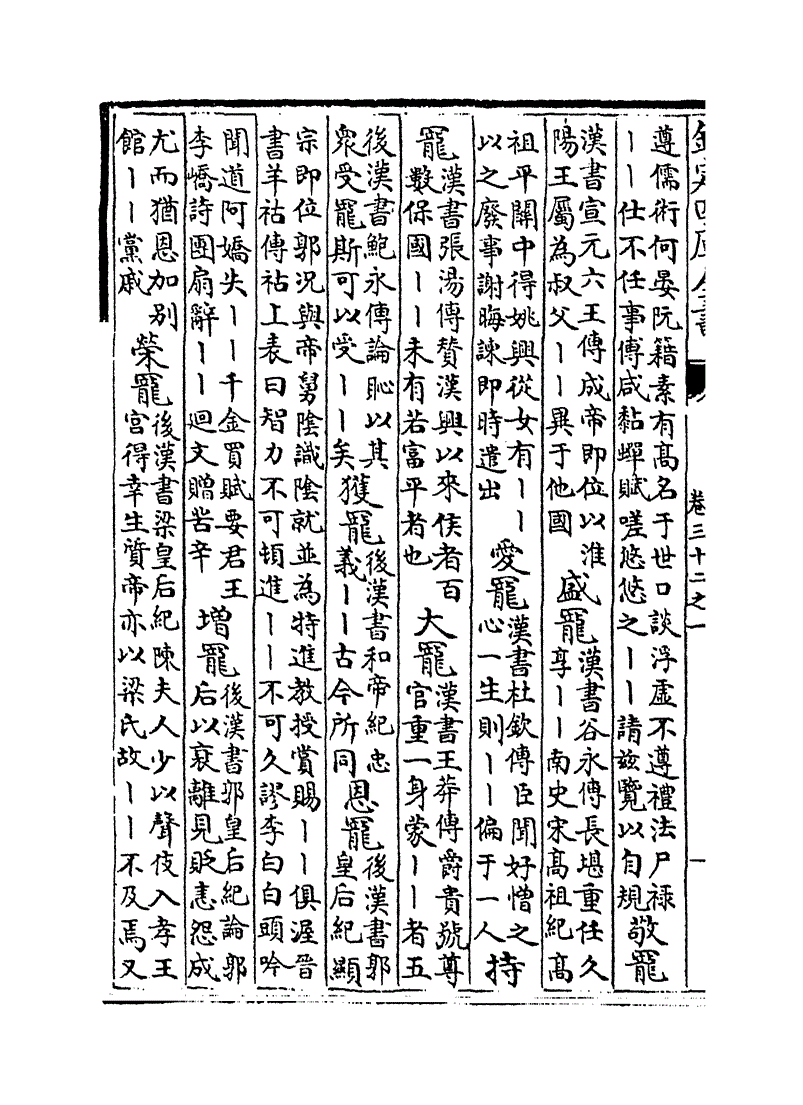 欽定四庫全書
卷三十二之一
一
遵儒術何晏阮籍素有髙名于世口談浮虚不遵禮法尸禄
丨丨仕不任事傅咸黏蟬賦嗟悠悠之丨丨請兹覽以自規
敬寵
漢書宣元六王傳成帝即位以淮
陽王屬為叔父丨丨異于他國
盛寵
漢書谷永傳長堪重任久
享丨丨南史宋髙祖紀髙
祖平關中得姚興從女有丨丨
以之廢事謝晦諫即時遣出
愛寵
漢書杜欽傳臣聞好憎之
心一生則丨丨偏于一人
持
寵
漢書張湯傳贊漢興以來侯者百
數保國丨丨未有若富平者也
大寵
漢書王莽傳爵貴號尊
官重一身蒙丨丨者五
後漢書鮑永傳論恥以其
衆受寵斯可以受丨丨矣
獲寵
後漢書和帝紀忠
義丨丨古今所同
恩寵
後漢書郭
皇后紀顯
宗即位郭况與帝舅陰識陰就並為特進教授賞賜丨丨俱渥晉
書羊祜傳祜上表曰智力不可頓進丨丨不可久謬李白白頭吟
聞道阿嬌失丨丨千金買賦要君王
李嶠詩團扇辭丨丨迴文贈苦辛
增寵
後漢書郭皇后紀論郭
后以衰離見貶恚怨成
尤而猶恩加别
館丨丨黨戚
榮寵
後漢書梁皇后紀陳夫人少以聲伎入孝王
宫得幸生質帝亦以梁氏故丨丨不及焉又